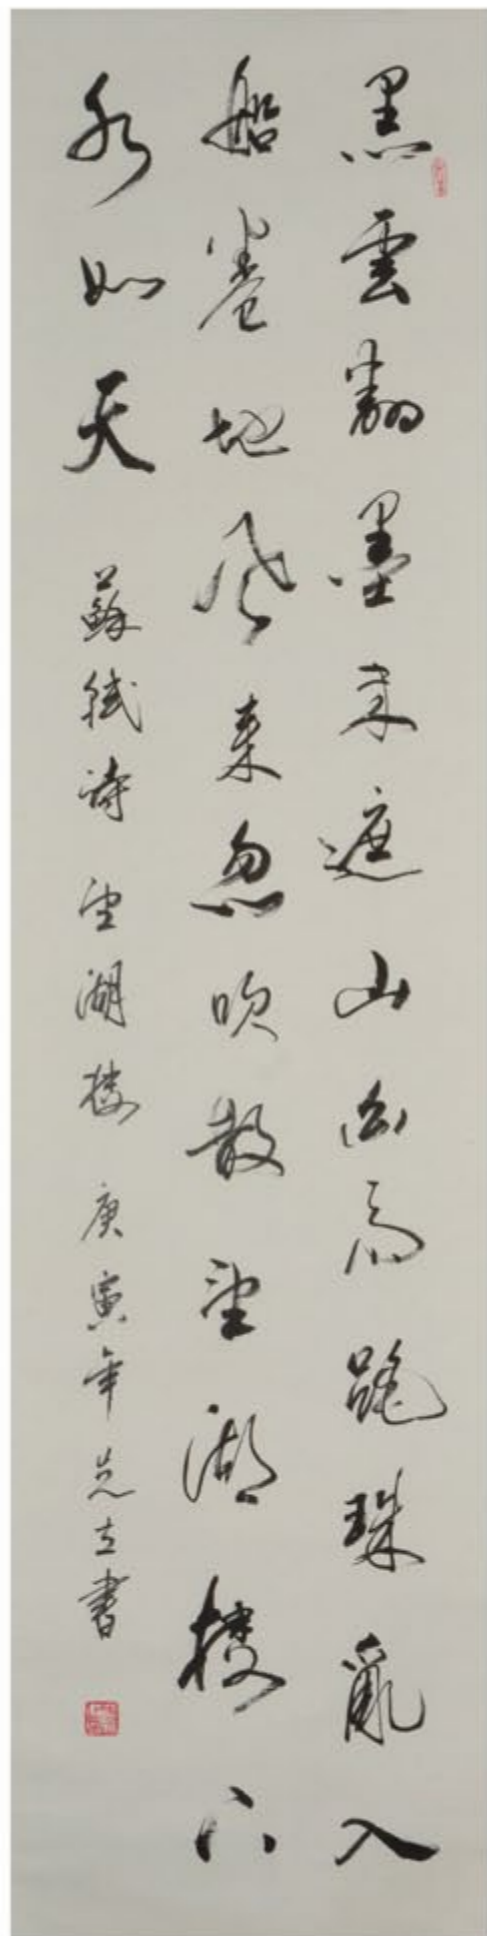 黑雲翻墨未遮山白雨跳珠亂入
船卷地風來忽吹散望湖樓下
水如天 蘇軾詩 望湖樓 庚寅年先立書